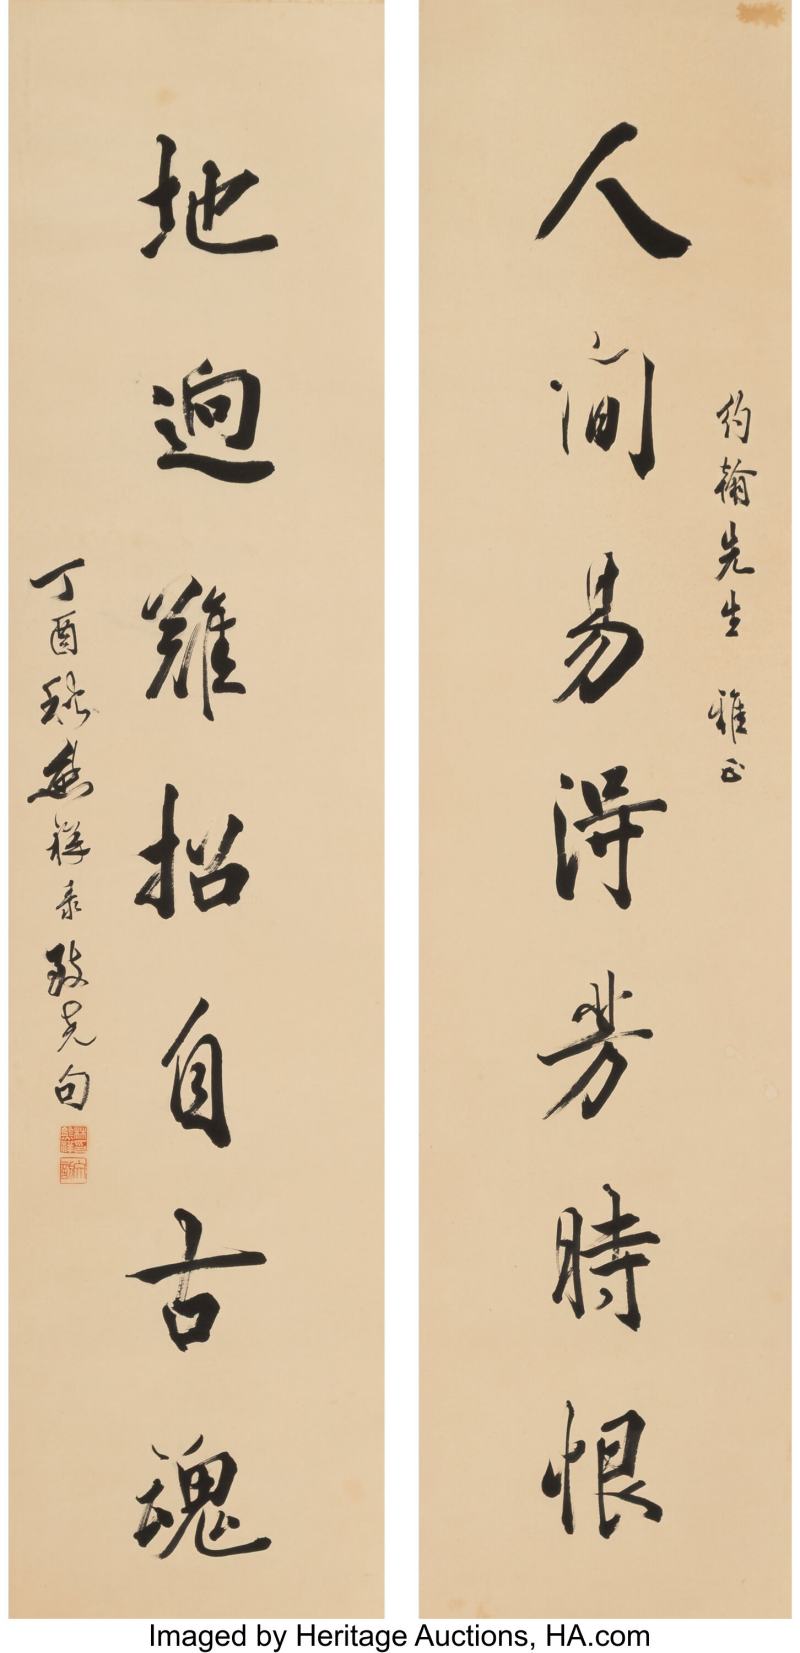 人間易得芳時恨
約翰先生 雅正
地迥難招自古魂
丁酉 熊祥彔致光句
Imaged by Heritage Auctions, HA.com